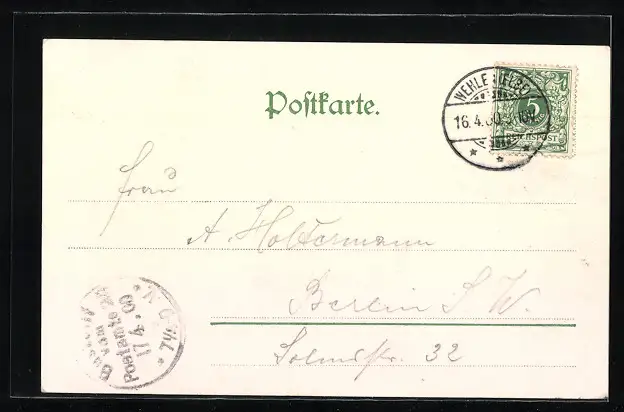 Postkarte.
WEHLEN (ELBE)
16.4.00
5
REICHSPOST
Frau
A. Holtermann
Berlin S. W.
Solmsstr. 32
vom
Postamte
17.4.00